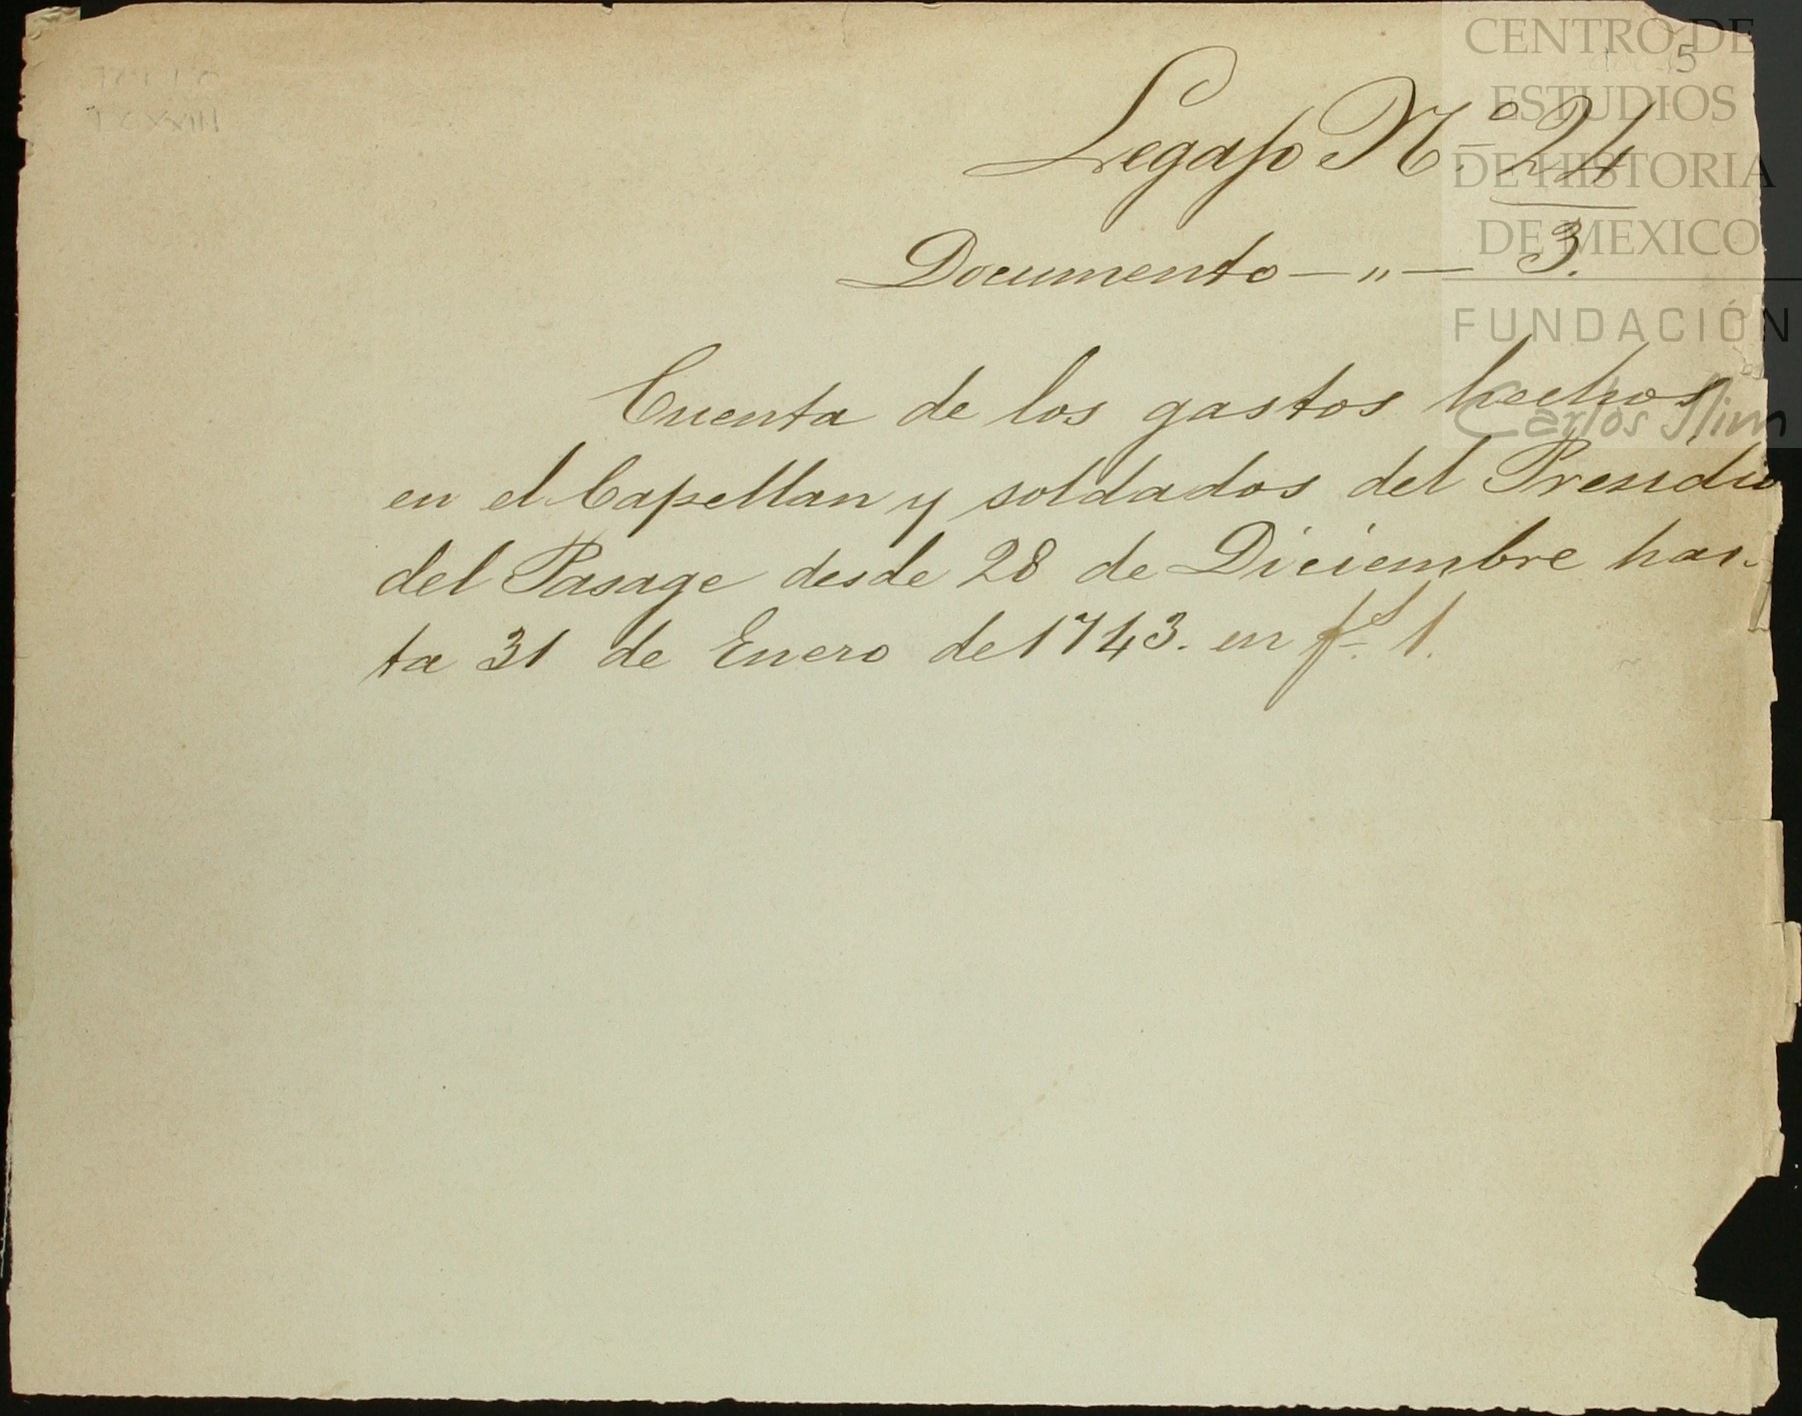 5
Legajo N.º 24
Documento — „ — 3.
Cuenta de los gastos hechos
en el Capellan y soldados del Presidio
del Pasage desde 28 de Diciembre has-
ta 31 de Enero de 1743. en fs. 1.
CENTRO DE
ESTUDIOS
DE HISTORIA
DE MEXICO
FUNDACIÓN
Carlos Slim